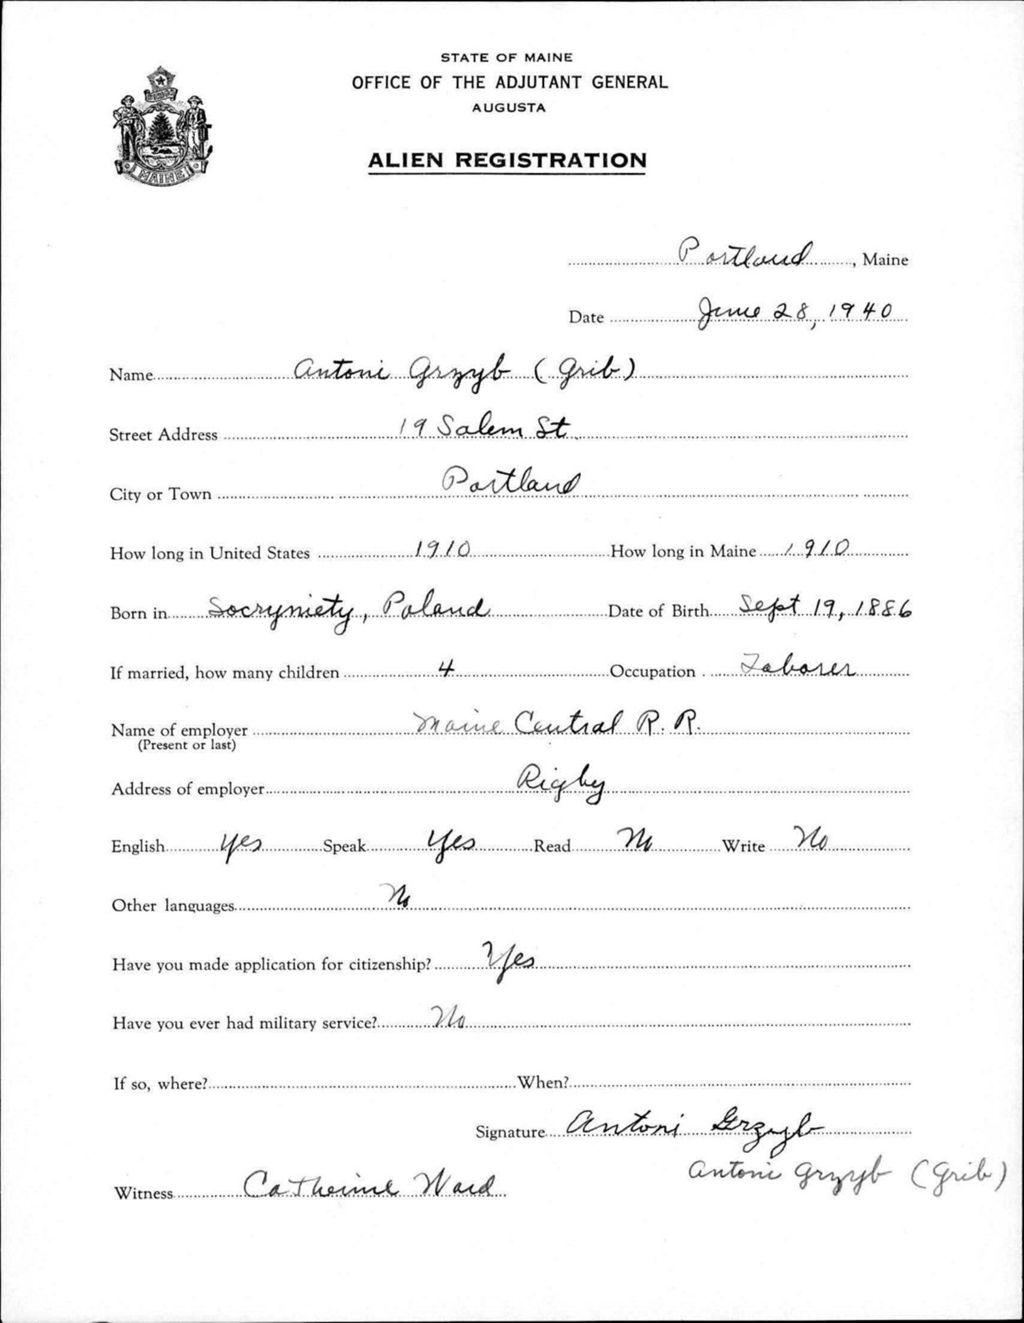 STATE OF MAINE
OFFICE OF THE ADJUTANT GENERAL
AUGUSTA
MAINE
ALIEN REGISTRATION
Portland, Maine
Date June 28, 1940
Name Antoni Grzyb (Grib)
Street Address 19 Salem St
City or Town Portland
How long in United States 1910 How long in Maine 1910
Born in Socryniety, Poland Date of Birth Sept 19, 1886
If married, how many children 4 Occupation Laborer
Name of employer Maine Central R. R.
(Present or last)
Address of employer Rigby
English Yes Speak Yes Read No Write No
Other languages No
Have you made application for citizenship? Yes
Have you ever had military service? No
If so, where? When?
Signature Antoni Grzyb
Antoni Grzyb (Grib)
Witness Catherine Ward